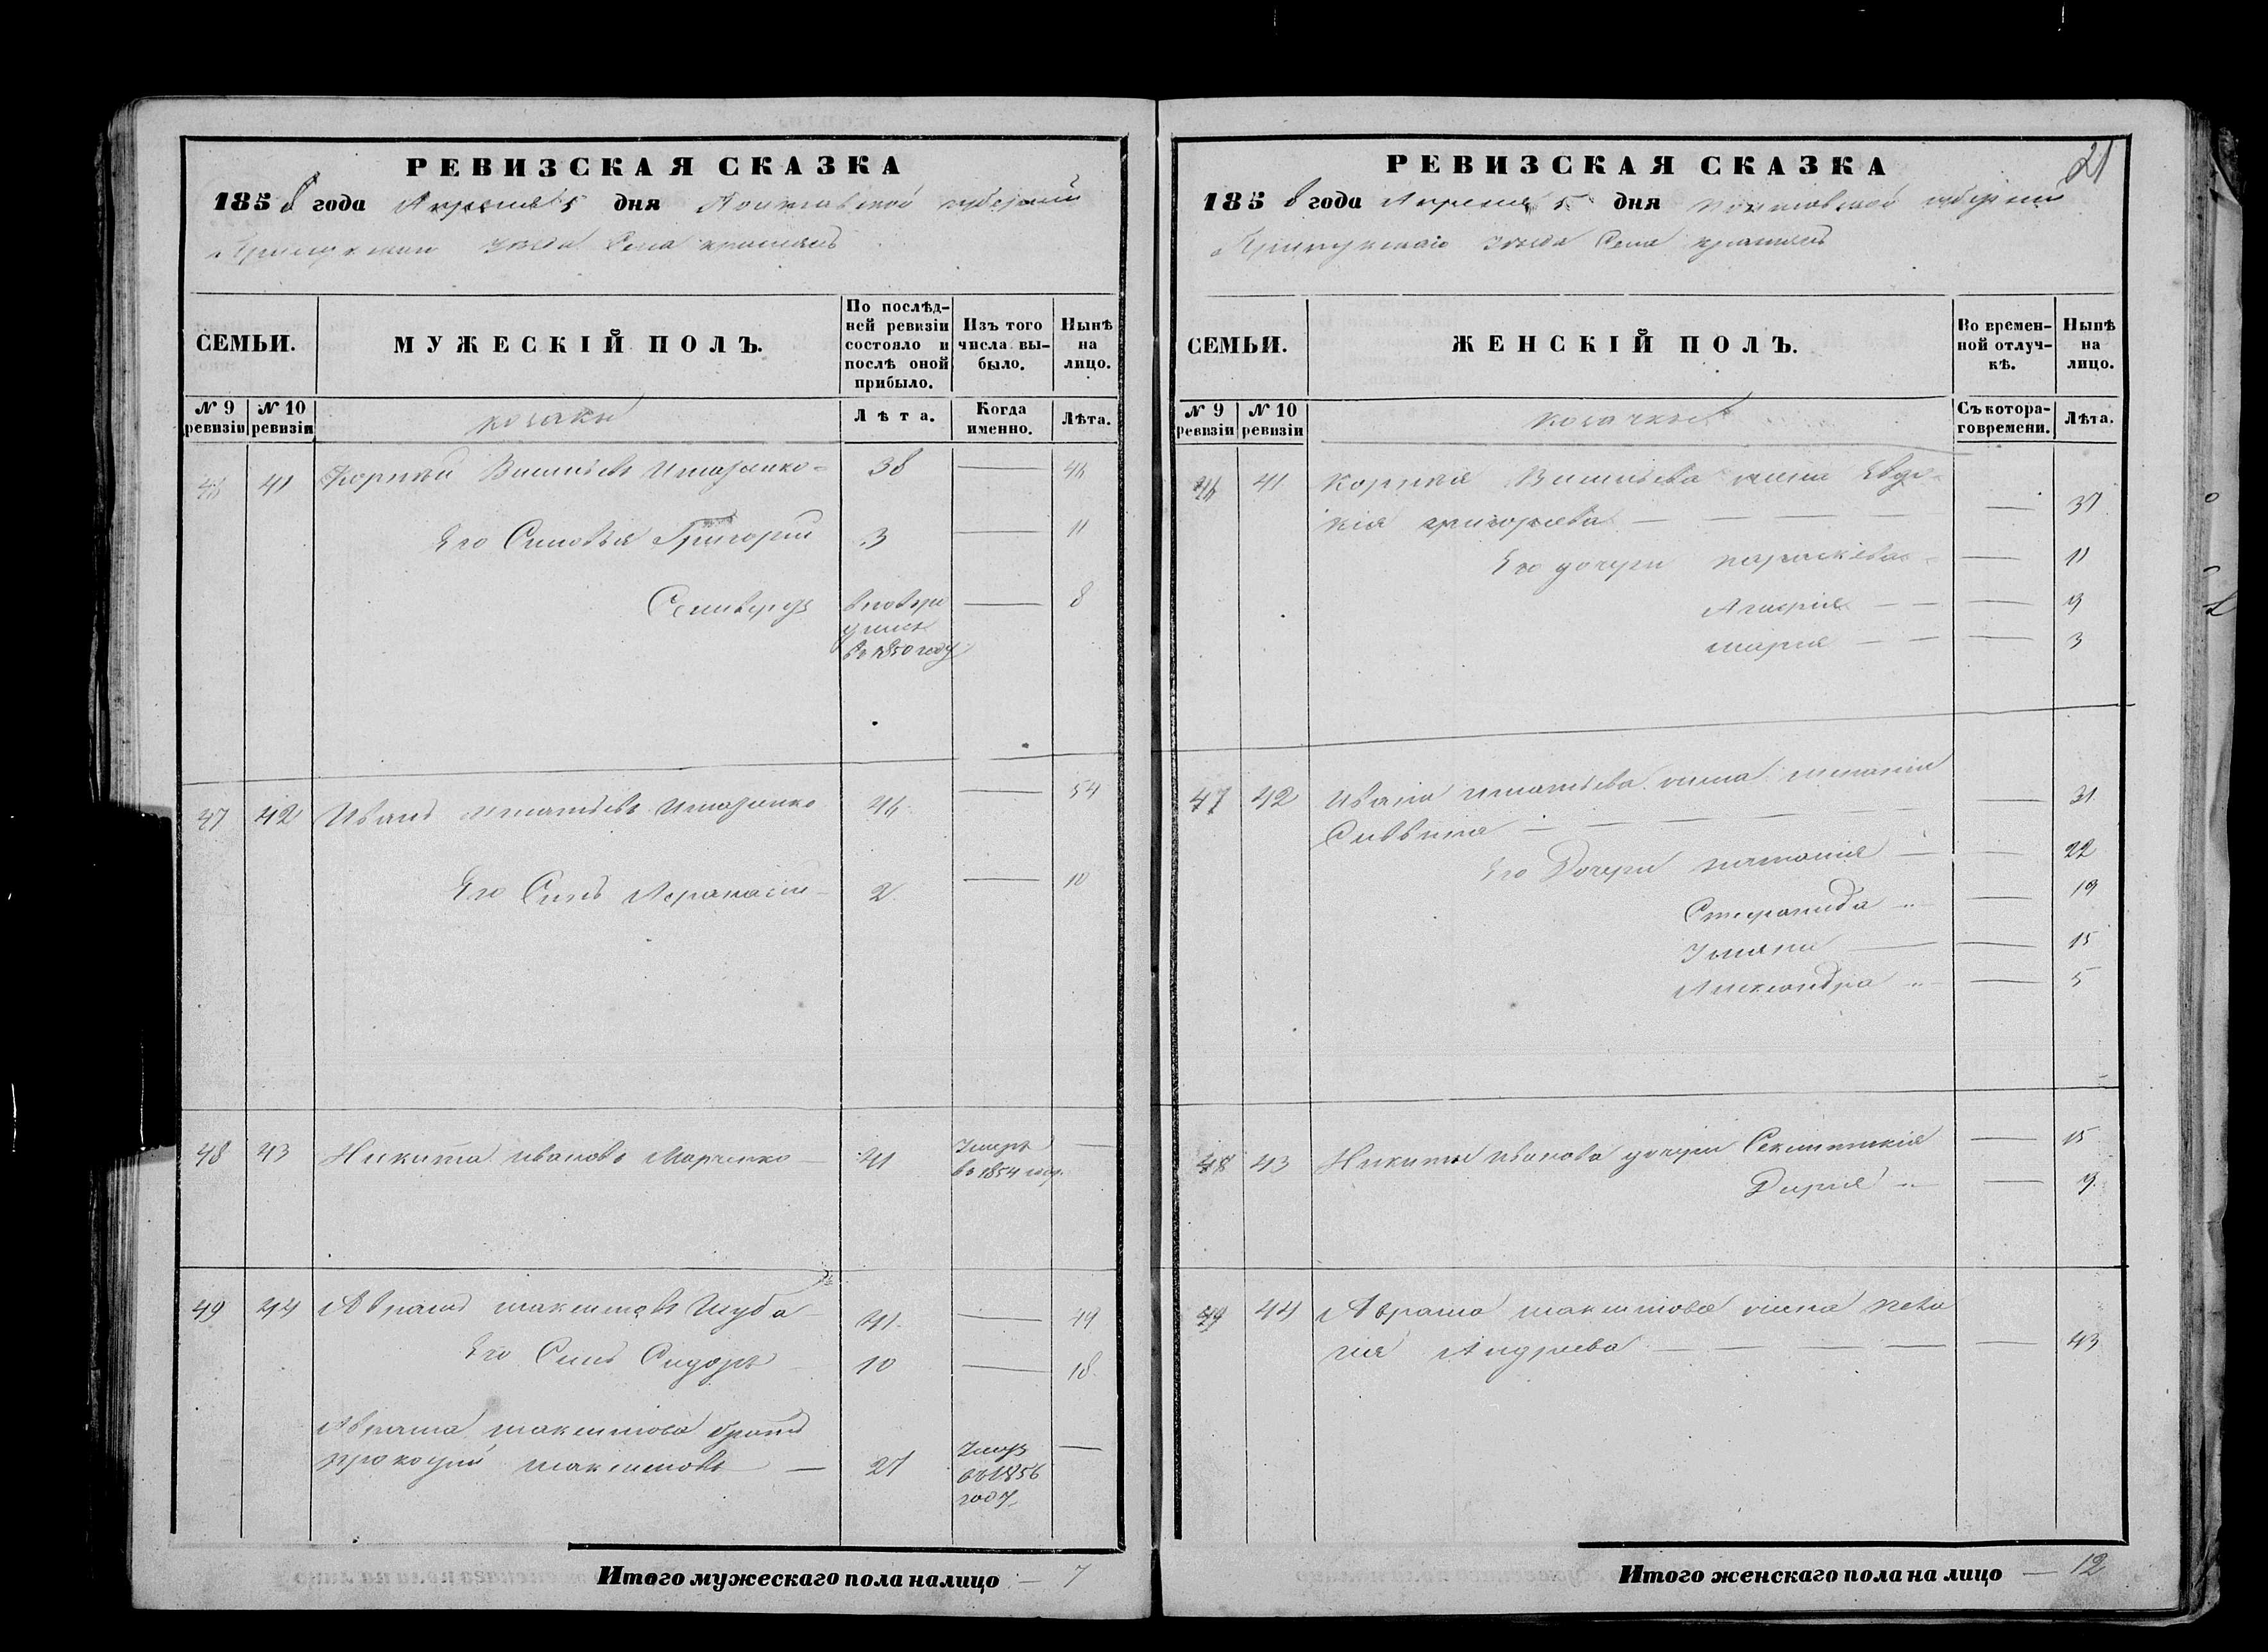 РЕВИЗСКАЯ СКАЗКА
1858 года Апреля 5 дня Полтавской губернии
Прилукскаго уезда Села
СЕМЬИ.
МУЖЕСКІЙ ПОЛЪ.
По послѣд-
ней ревизіи
состояло и
послѣ оной
прибыло.
Изъ того
числа вы-
было.
Нынѣ
на
лицо.
№ 9
ревизіи
№ 10
ревизіи
козаки
Лѣта.
Когда
именно.
Лѣта.
46 41 38 — 46
Его Сыновья Григорий 3 — 11
— 8
в 1850 году
47 42 Иванъ 46 — 54
Его Сынъ Афанасий 2 — 10
48 43 Никита Ивановъ Марченко 41 Умеръ —
въ 1854 году
49 44 Аврамъ Максимовъ Шуба 41 — 49
Его Сынъ Сидоръ 10 — 18
Аврама Максимова братъ
Прокофий Максимовъ — 27 Умеръ —
въ 1856
году
Итого мужескаго пола налицо — 7
21
РЕВИЗСКАЯ СКАЗКА
1858 года Апреля 5 дня Полтавской губернии
Прилукскаго уезда Села
СЕМЬИ.
ЖЕНСКІЙ ПОЛЪ.
Во времен-
ной отлуч-
кѣ.
Нынѣ
на
лицо.
№ 9
ревизіи
№ 10
ревизіи
козачки
Съ котора-
го времени.
Лѣта.
46 41 жена Евдо-
кия Григорьева — 37
Его дочери Параскева — 11
— 9
Мария — 3
47 42 Ивана жена Мелания
Саввина — 31
Его Дочери Наталия — 22
Стефанида — 19
Ульяна — 15
Александра — 5
48 43 Никиты Иванова дочери — 15
Дария — 9
49 44 Аврама Максимова жена Пела
гия Андреева — 43
Итого женскаго пола на лицо — 12